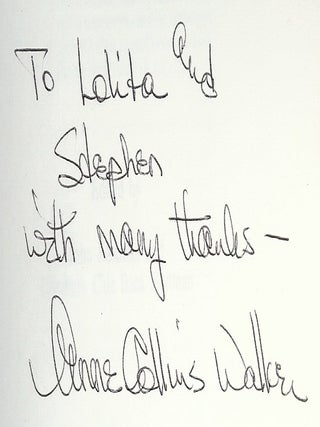 To Lolita and
Stephen
with many thanks —
Anne Collins Walker